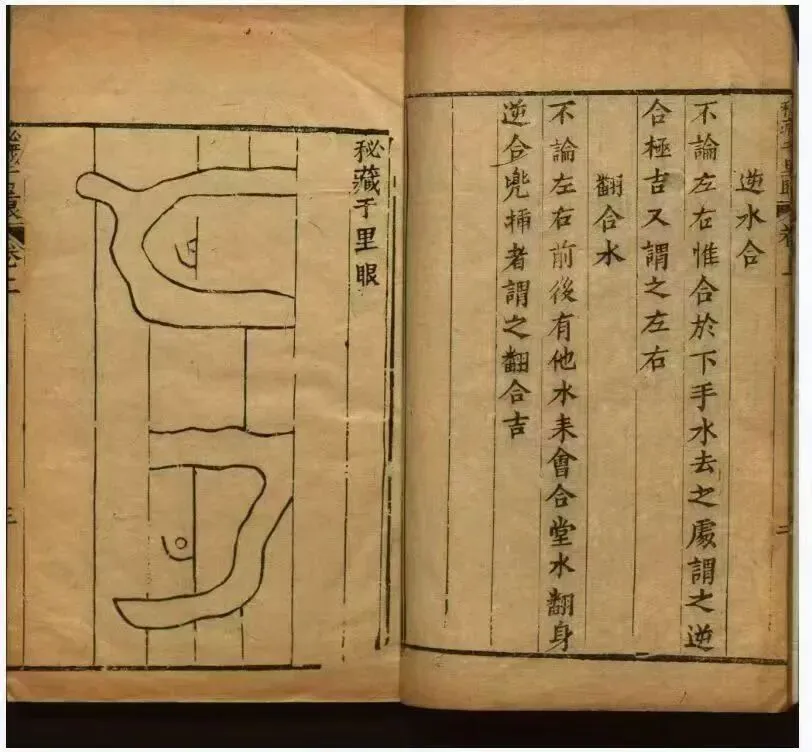 逆水合
不論左右惟合於下手水去之處謂之逆
合極吉又謂之左右
翻合水
不論左右前後有他水来會合堂水翻身
逆合兜揷者謂之翻合吉
二
秘藏千里眼
三